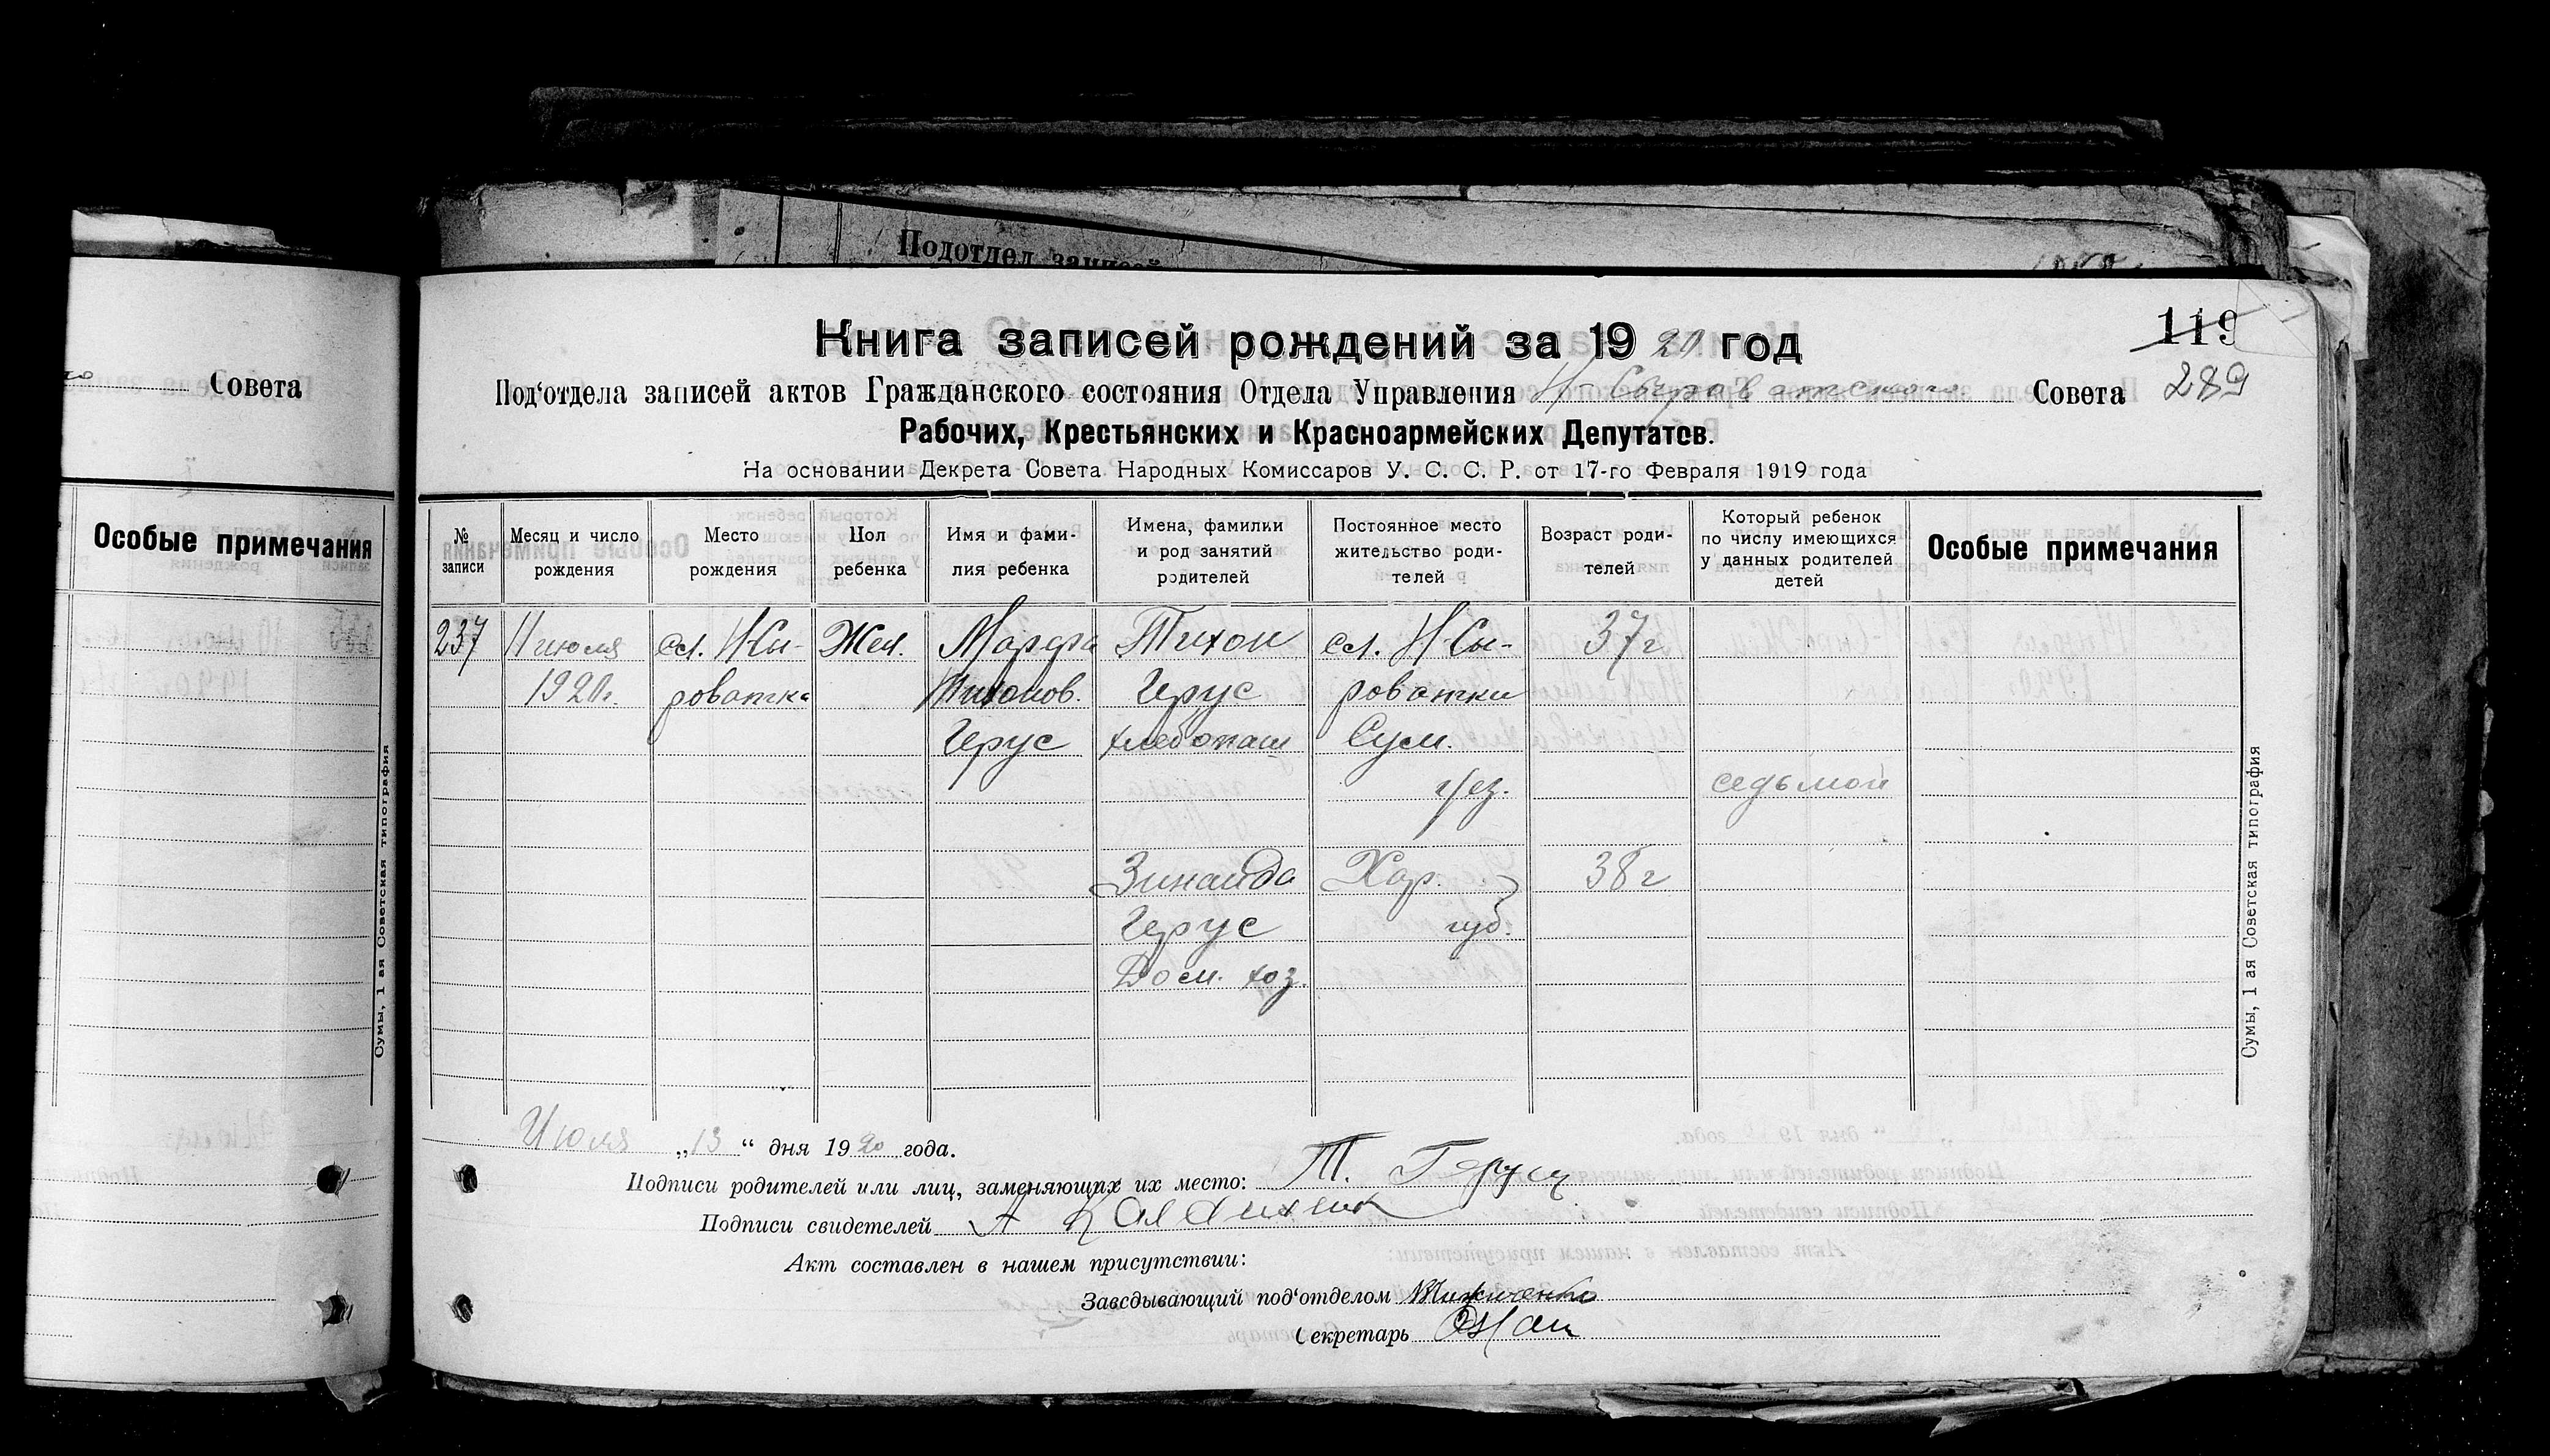 Подотдел записей
119
Книга записей рождений за 1920 год
Под‘отдела записей актов Гражданского состояния Отдела Управления Н-Сыроватского Совета 289
Рабочих, Крестьянских и Красноармейских Депутатов.
На основании Декрета Совета Народных Комиссаров У. С. С. Р. от 17-го Февраля 1919 года
Совета
Особые примечания
Сумы, 1 ая Советская типография
№ записи
Месяц и число рождения
Место рождения
Пол ребенка
Имя и фами-
лия ребенка
Имена, фамилии
и род занятий
родителей
Постоянное место
жительство роди-
телей
Возраст роди-
телей
Который ребенок
по числу имеющихся
у данных родителей
детей
Особые примечания
237
11 июля
1920г.
сл. Н-Сы-
роватка
Жен.
Марфа
Тихонов.
Герус
Тихон
Герус
хлебопаш
Зинаида
Герус
Дом. хоз.
сл. Н-Сы-
роватки
Сум.
уез.
Хар.
губ.
37г
38г
седьмой
Сумы, 1 ая Советская типография
Июля „13“ дня 1920 года.
Подписи родителей или лиц, заменяющих их место: Т. Герус
Подписи свидетелей А
Акт составлен в нашем присутствии:
Заведывающий под‘отделом
Секретарь